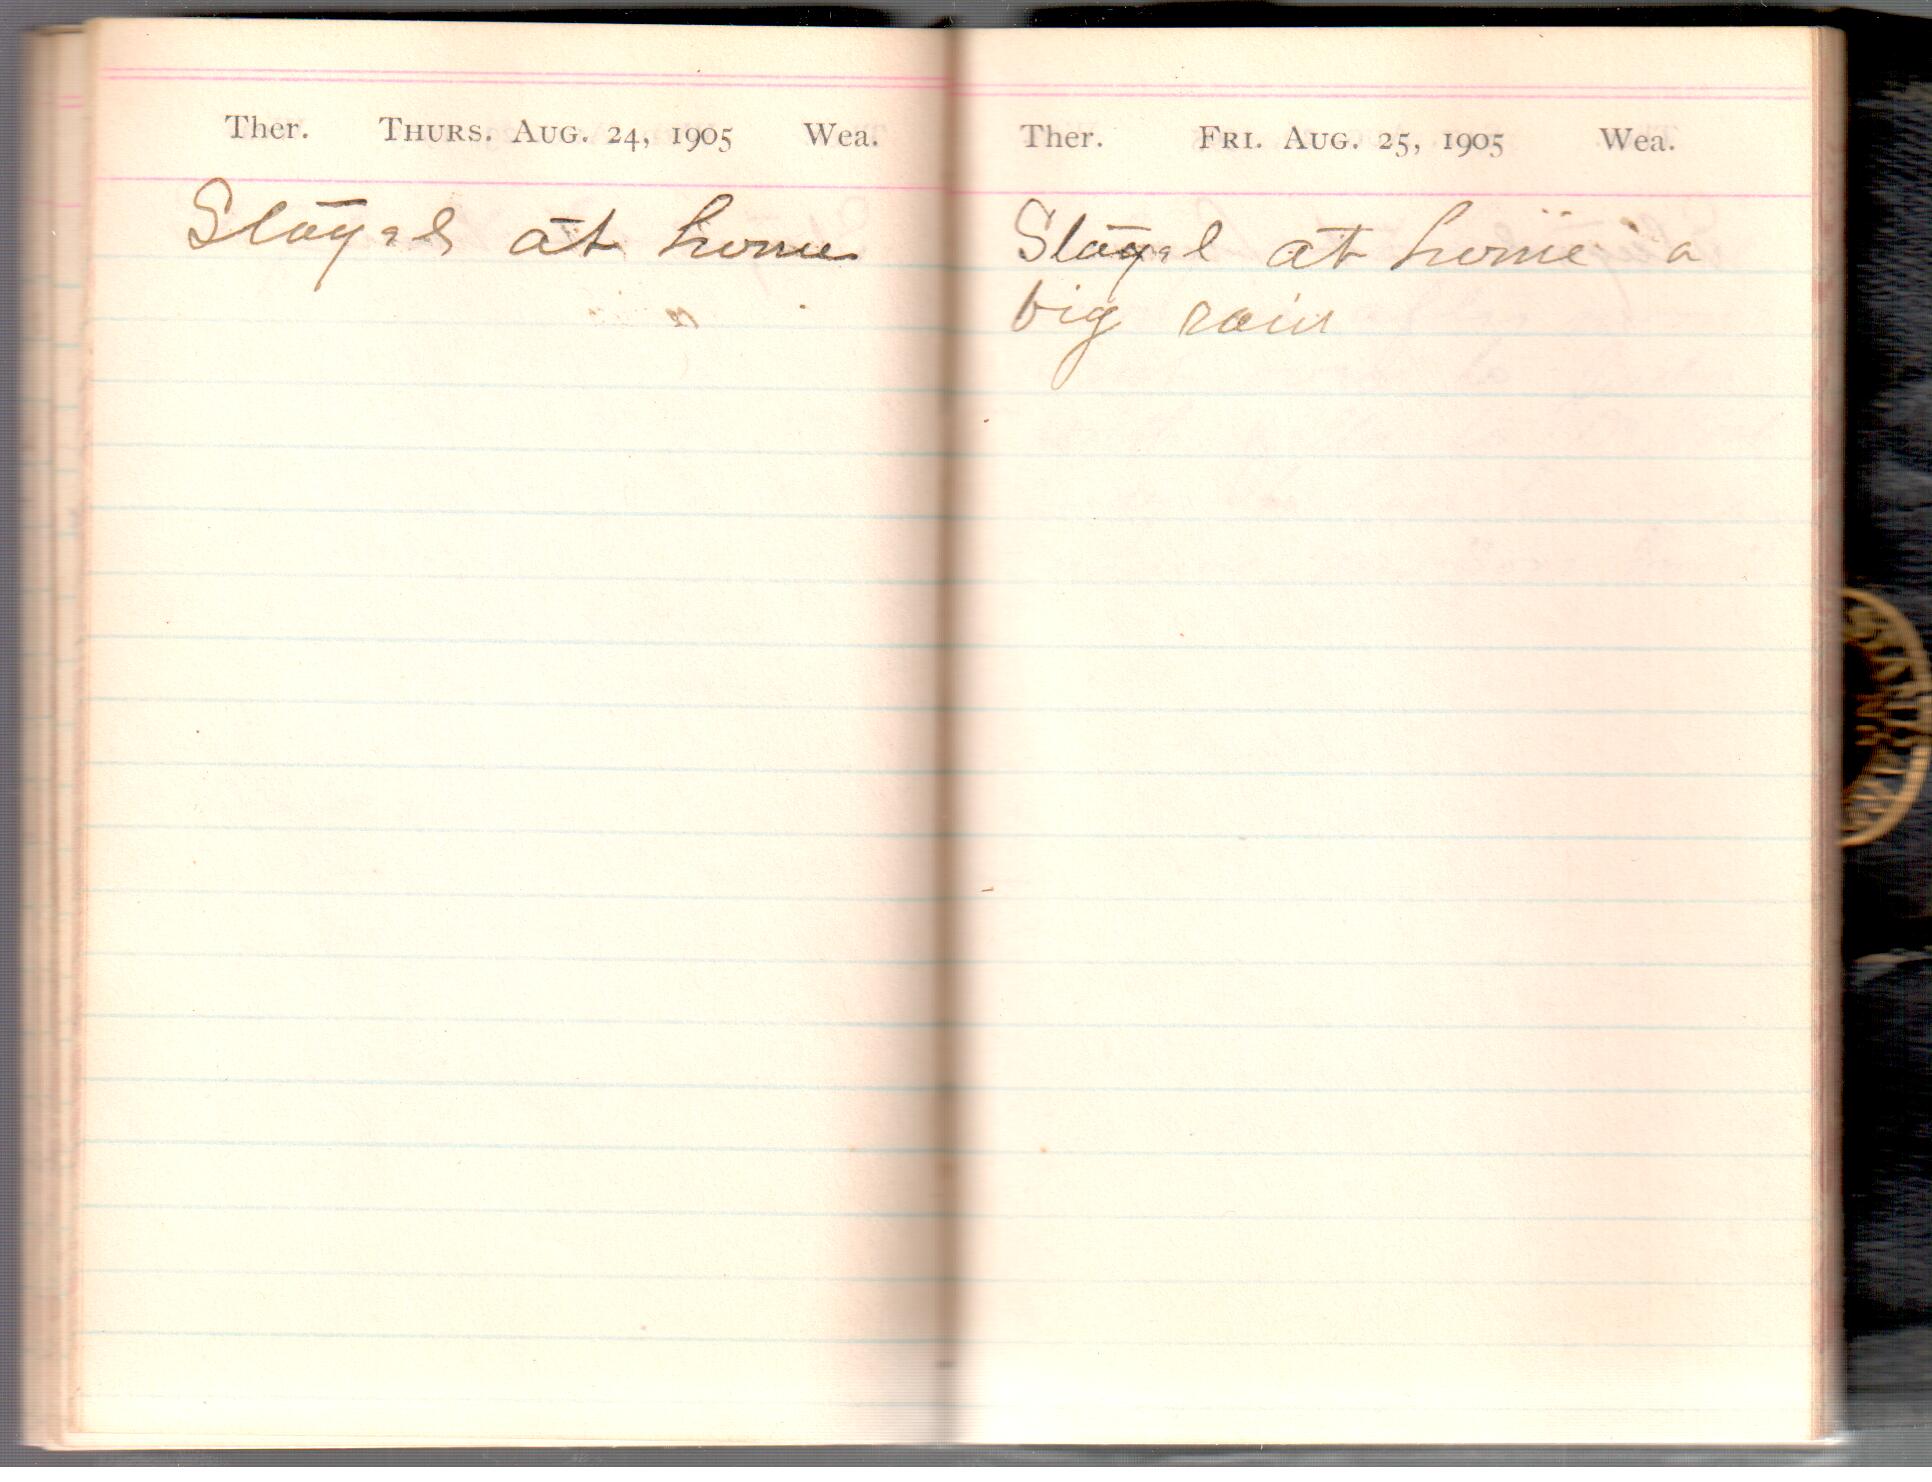 Ther. THURS. AUG. 24, 1905 Wea.
Stayed at home
Ther. FRI. AUG. 25, 1905 Wea.
Stayed at home a
big rain